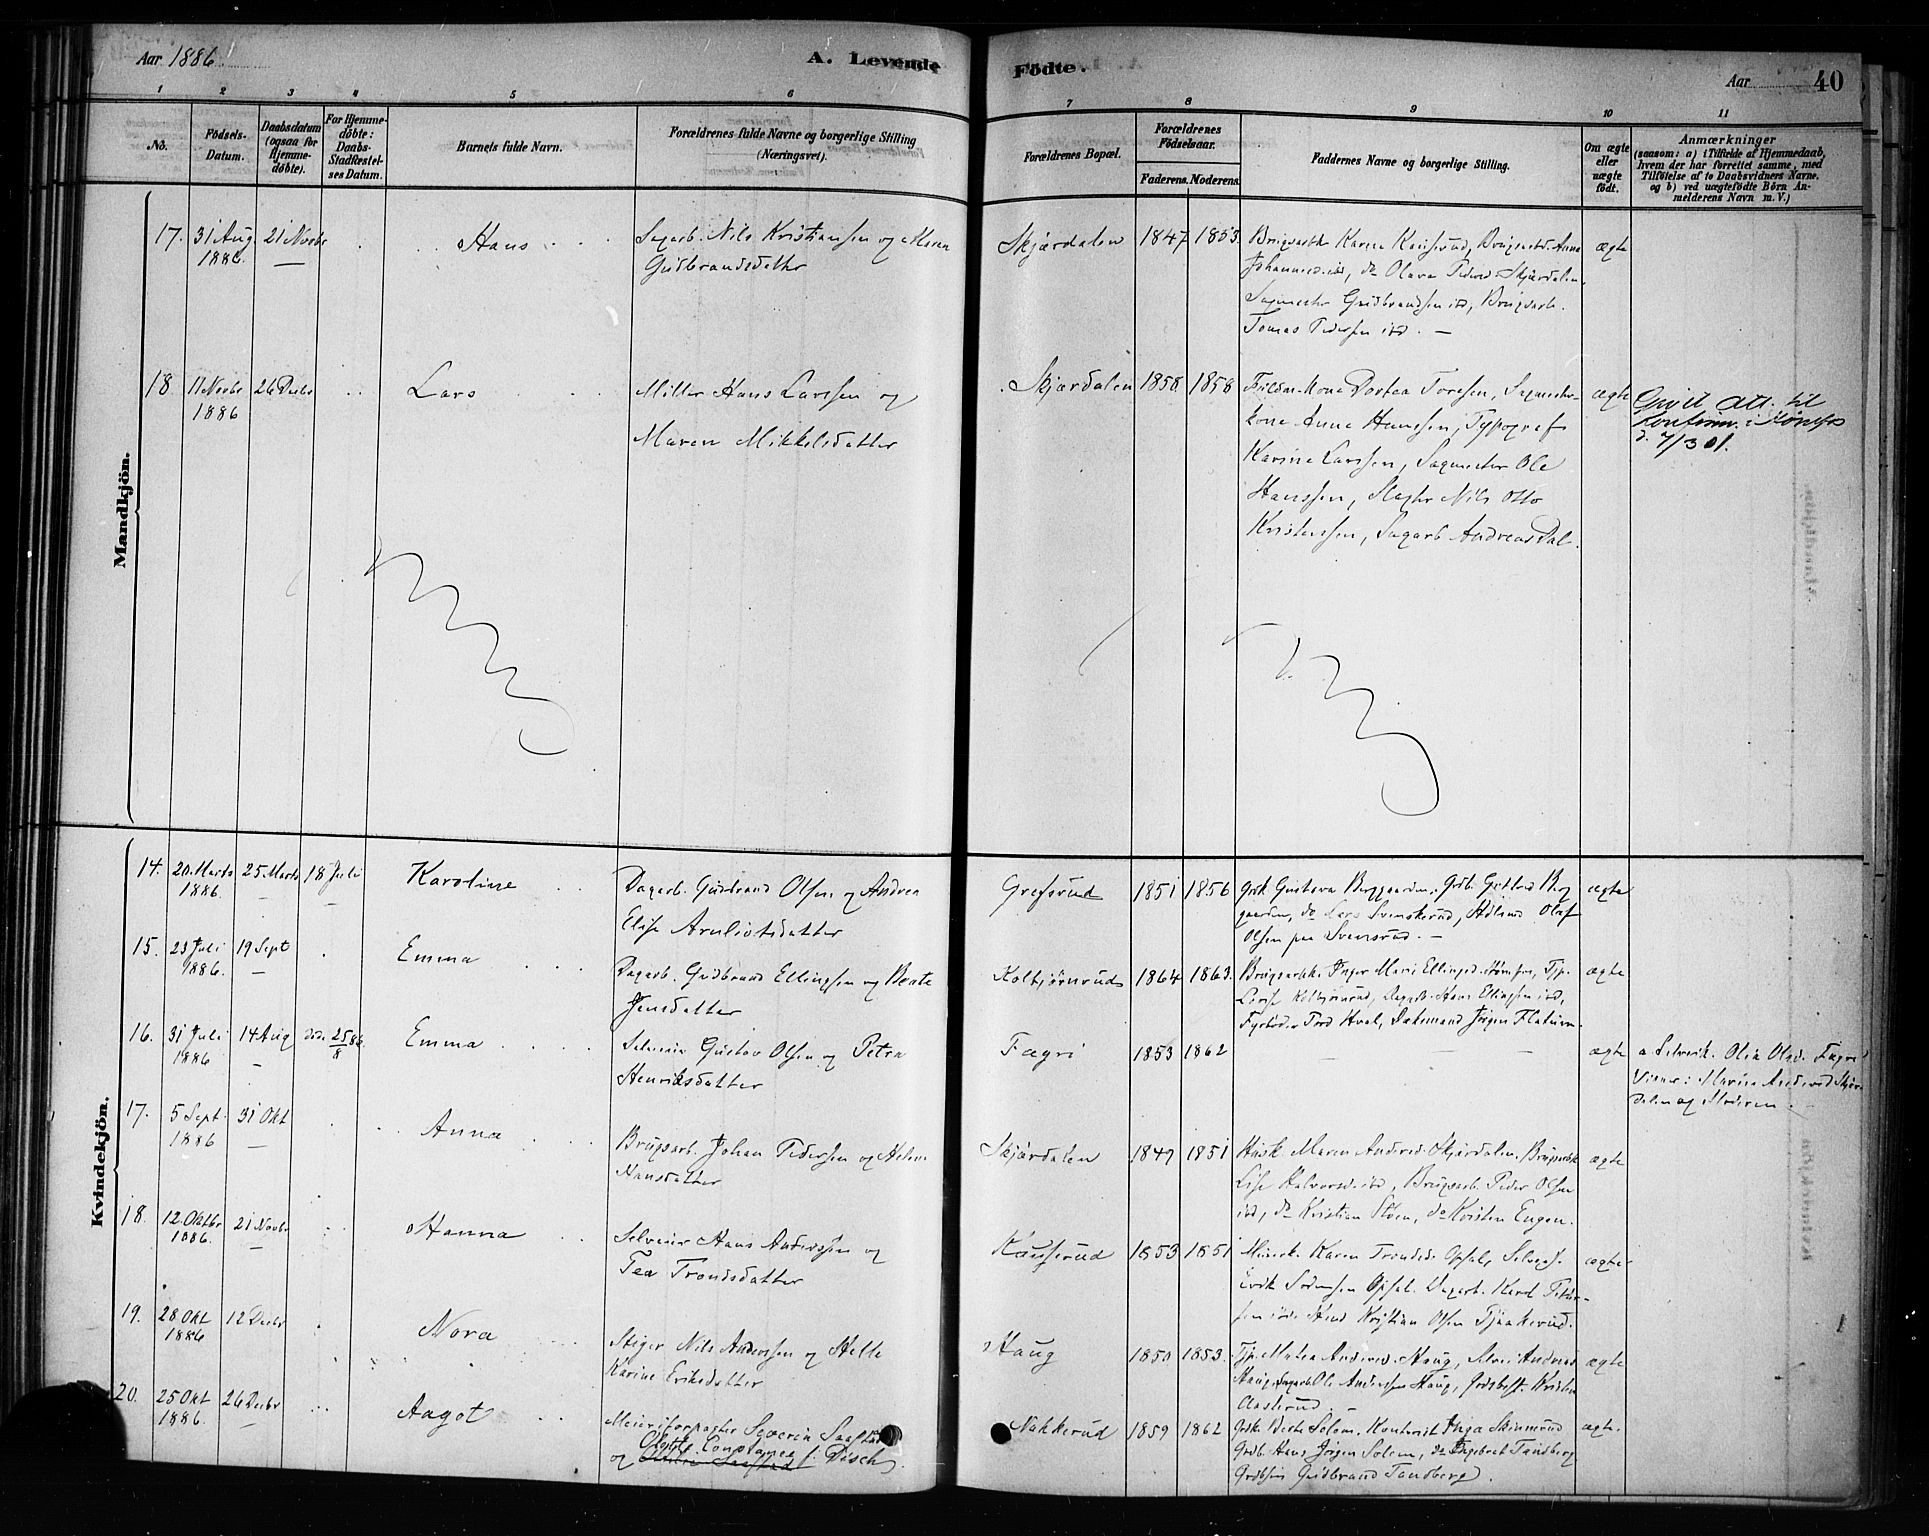 Aar 1886.
A. Levende Födte.
Aar 40
1 2 3 4 5 6 7 8 9 10 11
No.
Födsels-Datum.
Daabsdatum (ogsaa for Hjemme-döbte).
For Hjemme-döbte: Daabs-Stadfæstel-ses Datum.
Barnets fulde Navn.
Forældrenes fulde Navne og borgerlige Stilling (Næringsvei).
Forældrenes Bopæl.
Forældrenes Födselsaar.
Faderens. Moderens.
Faddernes Navne og borgerlige Stilling.
Om ægte eller uægte födt.
Anmærkninger
(saasom: a) i Tilfælde af Hjemmedaab,
hvem der har forrettet samme, med
Tilföielse af to Daabsvidners Navne.
og b) ved uægtefödte Börn An-
melderens Navn m. V.)
Mandkjön.
17. 31 Aug 1886. 21 Novbr Hans
Sagarb. Nils Kristiansen og Maren
Gudbrandsdatter
Skjærdalen 1847 1853.
Karine Kausserud, Anna
Johannesd. ibd, do Olava Pedersd. Skjærdalen,
Sagmester Gudbrandsen ibd, Brugsarb.
Tomas Pedersen ibd. —
ægte
18 11 Novbr 1886 26 Decbr Lars
Møller Hans Larssen og
Maren Mikkelsdatter
Skjærdalen 1858 1858
Kone Dortea Toresen, Sagmester-
kone Anne Hanssen, Typograf
Karine Larssen, Sagmester Ole
Hanssen, Slagter Nils Otto
Kristenssen, Sagarb Andreas Dal.
ægte
Givet att. til
konfirm. i Hønefos
d. 7/3 01.
Kvindekjön.
14. 20 Marts 1886. 25 Marts 18 Juli Karoline
Dagarb. Gudbrand Olsen og Andrea
Elise Arnliotsdatter
Grefsrud 1851 1856
Grdk Gustava Berggaarden, Grdb. Gulbrand Berg
gaarden, do Lars Svenskerud, Olaf
Olsen paa Svensrud. —
ægte
15. 23 Juli 1886. 19 Sept Emma
Dagarb. Gudbrand Ellingsen og Berte
Jensdatter
Kolbjørnrud 1864 1863.
Inger Marie Ellingsd. Tjp.
Lovise Kolbjørnrud, Dagarb. Hans Ellingsen ibd,
Fyrbøder Tord Hval, Jørgen Flatum.
ægte
16. 31 Juli 1886 14 Aug død 25/8 86 Emma
Selveier Gustav Olsen og Petra
Henriksdatter
Fægri 1853 1862 — — —
ægte
a. Selveierk. Olia Olsd. Fægri
Vidner: Marie Andersd Skjær-
dalen og Moderen. —
17. 5 Sept. 1886 31 Okt Anna
Brugsarb. Johan Pedersen og Helene
Hansdatter
Skjærdalen 1849 1851
Husk. Maren Andersd. Skjærdalen, Brugsarbk
Lise Halvorsd. ibd, Brugsarb. Peder Olsen
ibd, do Kristian Støen, do Kristen Engen.
ægte
18. 12 Oktbr 1886. 21 Novbr Hanna
Selveier Hans Anderssen og
Tea Trondsdatter
Kausserud 1853 1851
Karen Trondsd. Opsal,
Opsal. Dagarb. Karl Peder-
sen ibd. Kristian Olsen Tjaakerud.
ægte
19. 28 Okt 1886 12 Decbr Nora
Stiger Nils Anderssen og Helle
Karine Eriksdatter
Haug 1850 1853.
Tjp. Matea Andersd. Haug, Selvei. Andreas
Haug, Sagarb Ole Anderssen Haug, Grdbest. Kristen
Aasterud.
ægte
20. 25 Okt 1886. 26 Decbr Aagot
Meieriforpagter Severin Saastad
og Constance f. Disch.
Nakkerud 1859 1862
Grdk Berte Solem, Kontorist Inga Skinnerud
Grdb. Hans Jørgen Solem, do Ingebret Tandberg
Gudbrand Tandberg.
ægte.